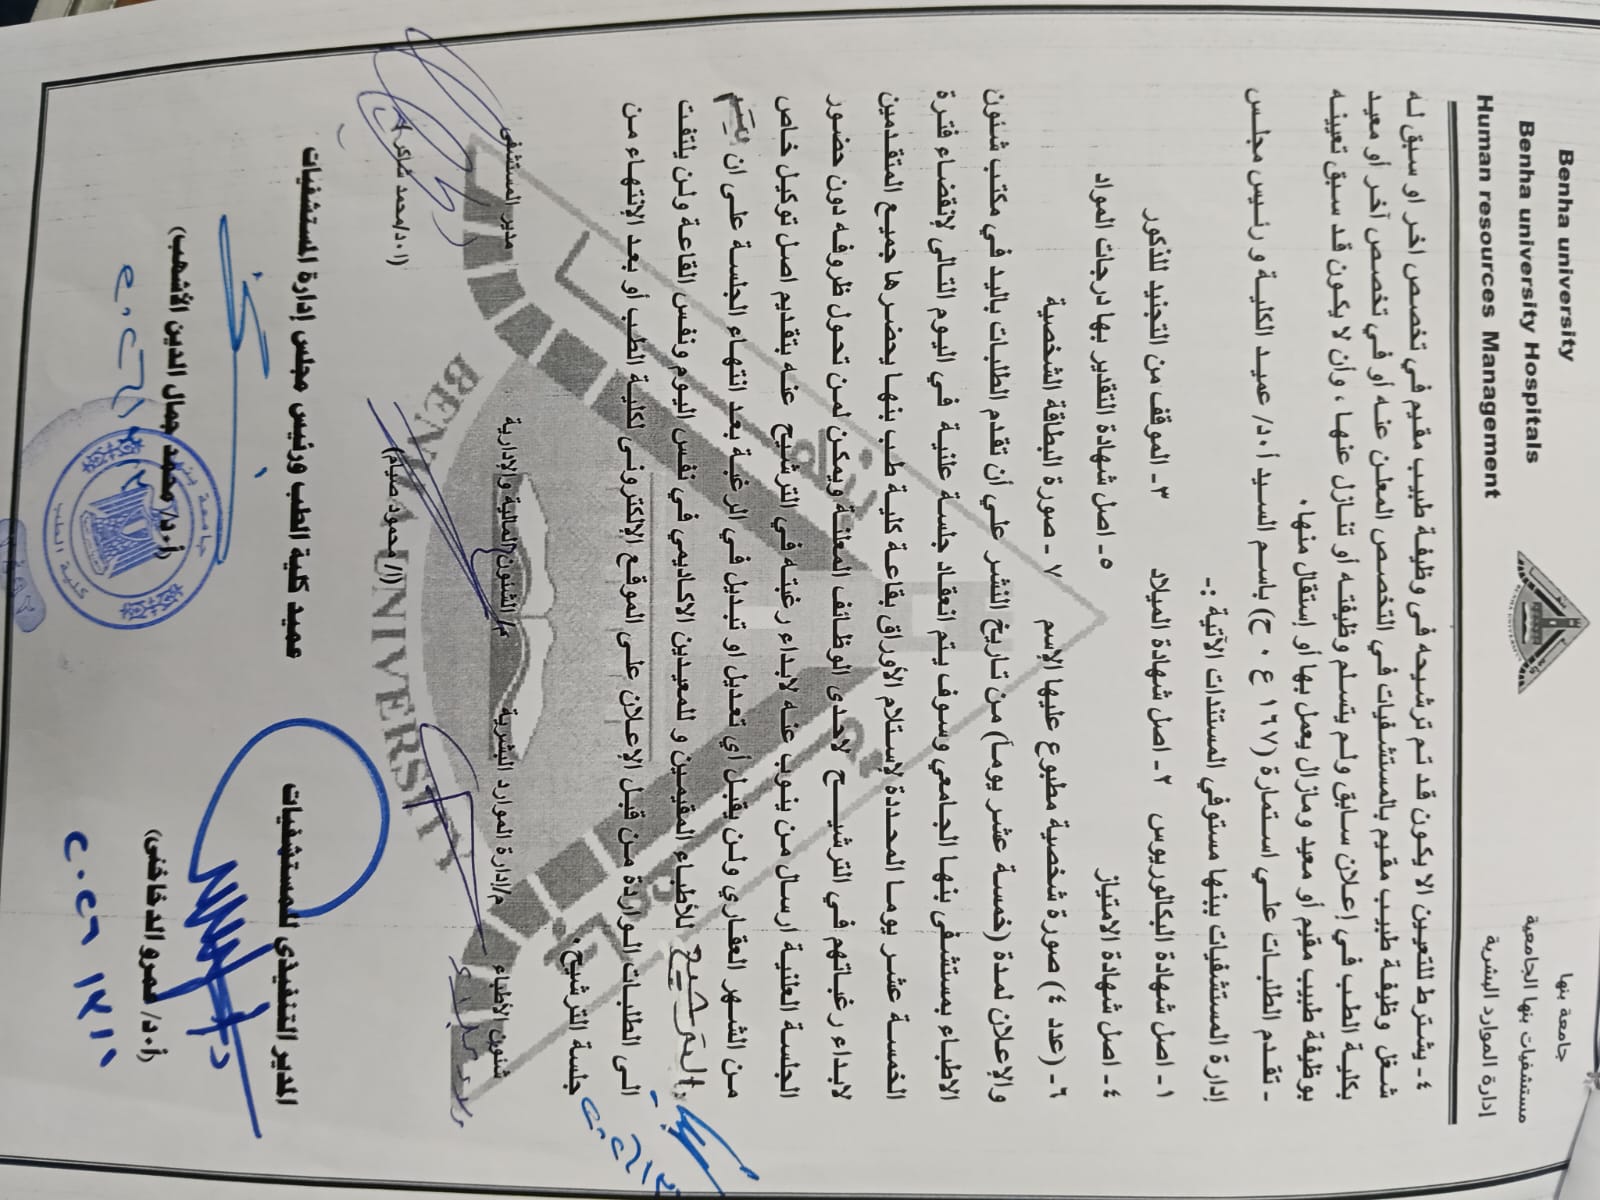 Benha university
Benha university Hospitals
Human resources Management
جامعة بنها
مستشفيات بنها الجامعية
إدارة الموارد البشرية
٤- يشترط للتعيين الا يكون قد تم ترشيحه فى وظيفة طبيب مقيم في تخصص اخر او سبق له
شغل وظيفة طبيب مقيم بالمستشفيات في التخصص المعلن عنه أو في تخصص آخر أو معيد
بكلية الطب في إعلان سابق ولم يتسلم وظيفته أو تنازل عنها ، وأن لا يكون قد سبق تعيينه
بوظيفة طبيب مقيم أو معيد ومازال يعمل بها أو إستقال منها.
- تقدم الطلبات علي استمارة (١٦٧ ع ٠ ح) باسم السيد أ٠د/ عميد الكلية و رئيس مجلس
إدارة المستشفيات ببنها مستوفي المستندات الآتية :-
١- اصل شهادة البكالوريوس ٢- اصل شهادة الميلاد ٣- الموقف من التجنيد للذكور
٤- اصل شهادة الامتياز ٥- اصل شهادة التقدير بها درجات المواد
٦- (عدد ٤) صورة شخصية مطبوع عليها الإسم ٧- صورة البطاقة الشخصية
والإعلان لمدة (خمسة عشر يوماً) من تاريخ النشر علي أن تقدم الطلبات باليد في مكتب شئون
الاطباء بمستشفى بنها الجامعي وسوف يتم انعقاد جلسة علنية في اليوم التالى لإنقضاء فترة
الخمسة عشر يوما المحددة لإستلام الأوراق بقاعة كلية طب بنها يحضرها جميع المتقدمين
لابداء رغباتهم في الترشيح لاحدى الوظائف المعلنة ويمكن لمن تحول ظروفه دون حضور
الجلسة العلنية ارسال من ينوب عنه لابداء رغبته في الترشيح عنه بتقديم اصل توكيل خاص
من الشهر العقاري ولن يقبل أي تعديل او تبديل في الرغبة بعد انتهاء الجلسة على ان يتم
الترشيح للأطباء المقيمين و للمعيدين الاكاديمي في نفس اليوم ونفس القاعة ولن يلتفت
الى الطلبات الواردة من قبل الإعلان على الموقع الإلكترونى لكلية الطب أو بعد الإنتهاء من
جلسة الترشيح.
شئون الأطباء م/إدارة الموارد البشرية م/ الشئون المالية والإدارية مدير المستشفى
(ا/ محمود صيام)
(ا٠د/محمد شاكر
المدير التنفيذى للمستشفيات
عميد كلية الطب ورئيس مجلس إدارة المستشفيات
(أ٠د/ عمرو الدخاخنى)
(أ٠د/ محمد جمال الدين الأشهب)
BENHA UNIVERSITY